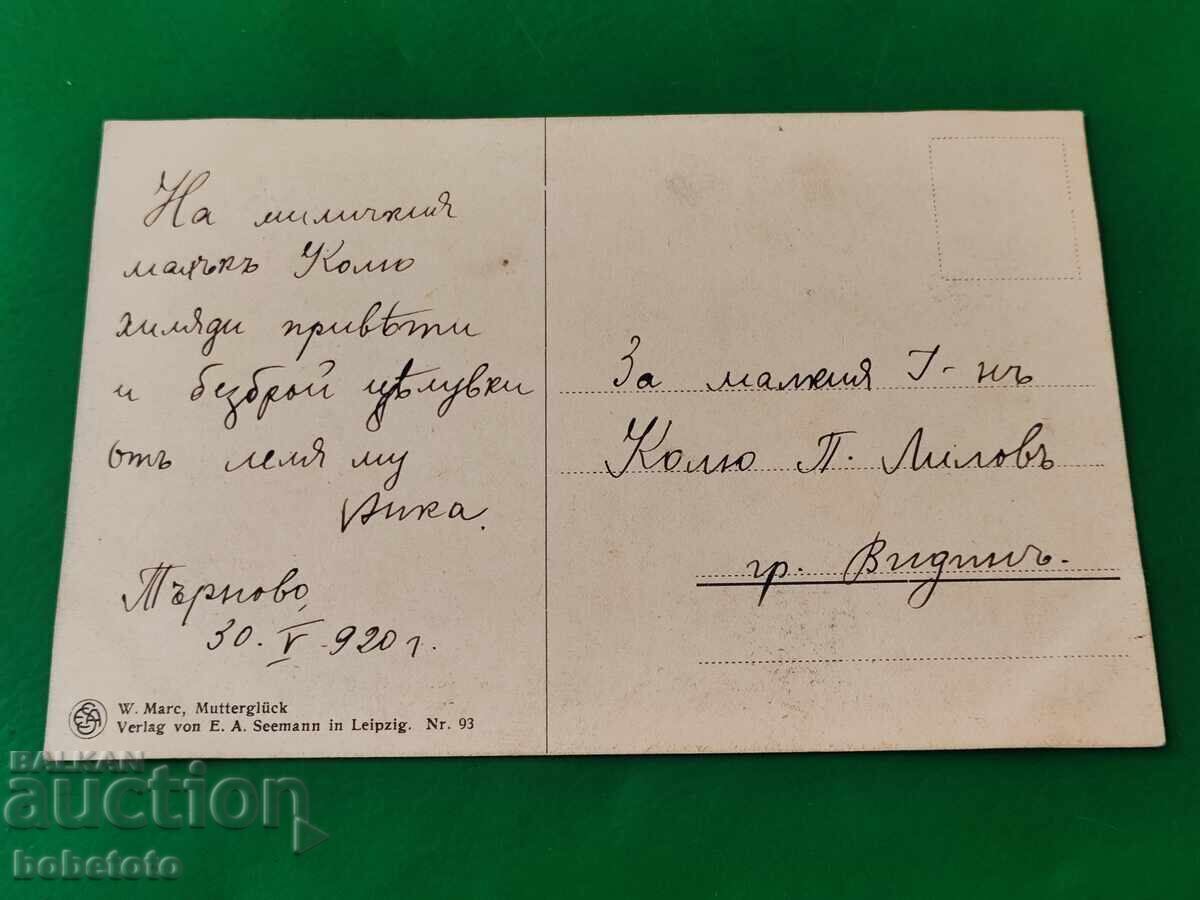 На миличкия
малъкъ Колю
хиляди привѣти
и безброй цѣлувки
отъ леля му
Анка.
Търново,
30. V 920 г.
W. Marc, Mutterglück
Verlag von E. A. Seemann in Leipzig. Nr. 93
За малкия Г-нъ
Колю П. Лиловъ
гр. Видинъ.
BALKAN
auction
bobefoto